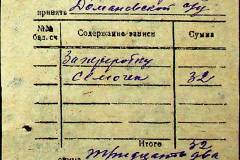 принять Домановской с/у
№№ бал. сч Содержание записи Сумма
За переробку
семечек 32
Итого 32
тридцать два